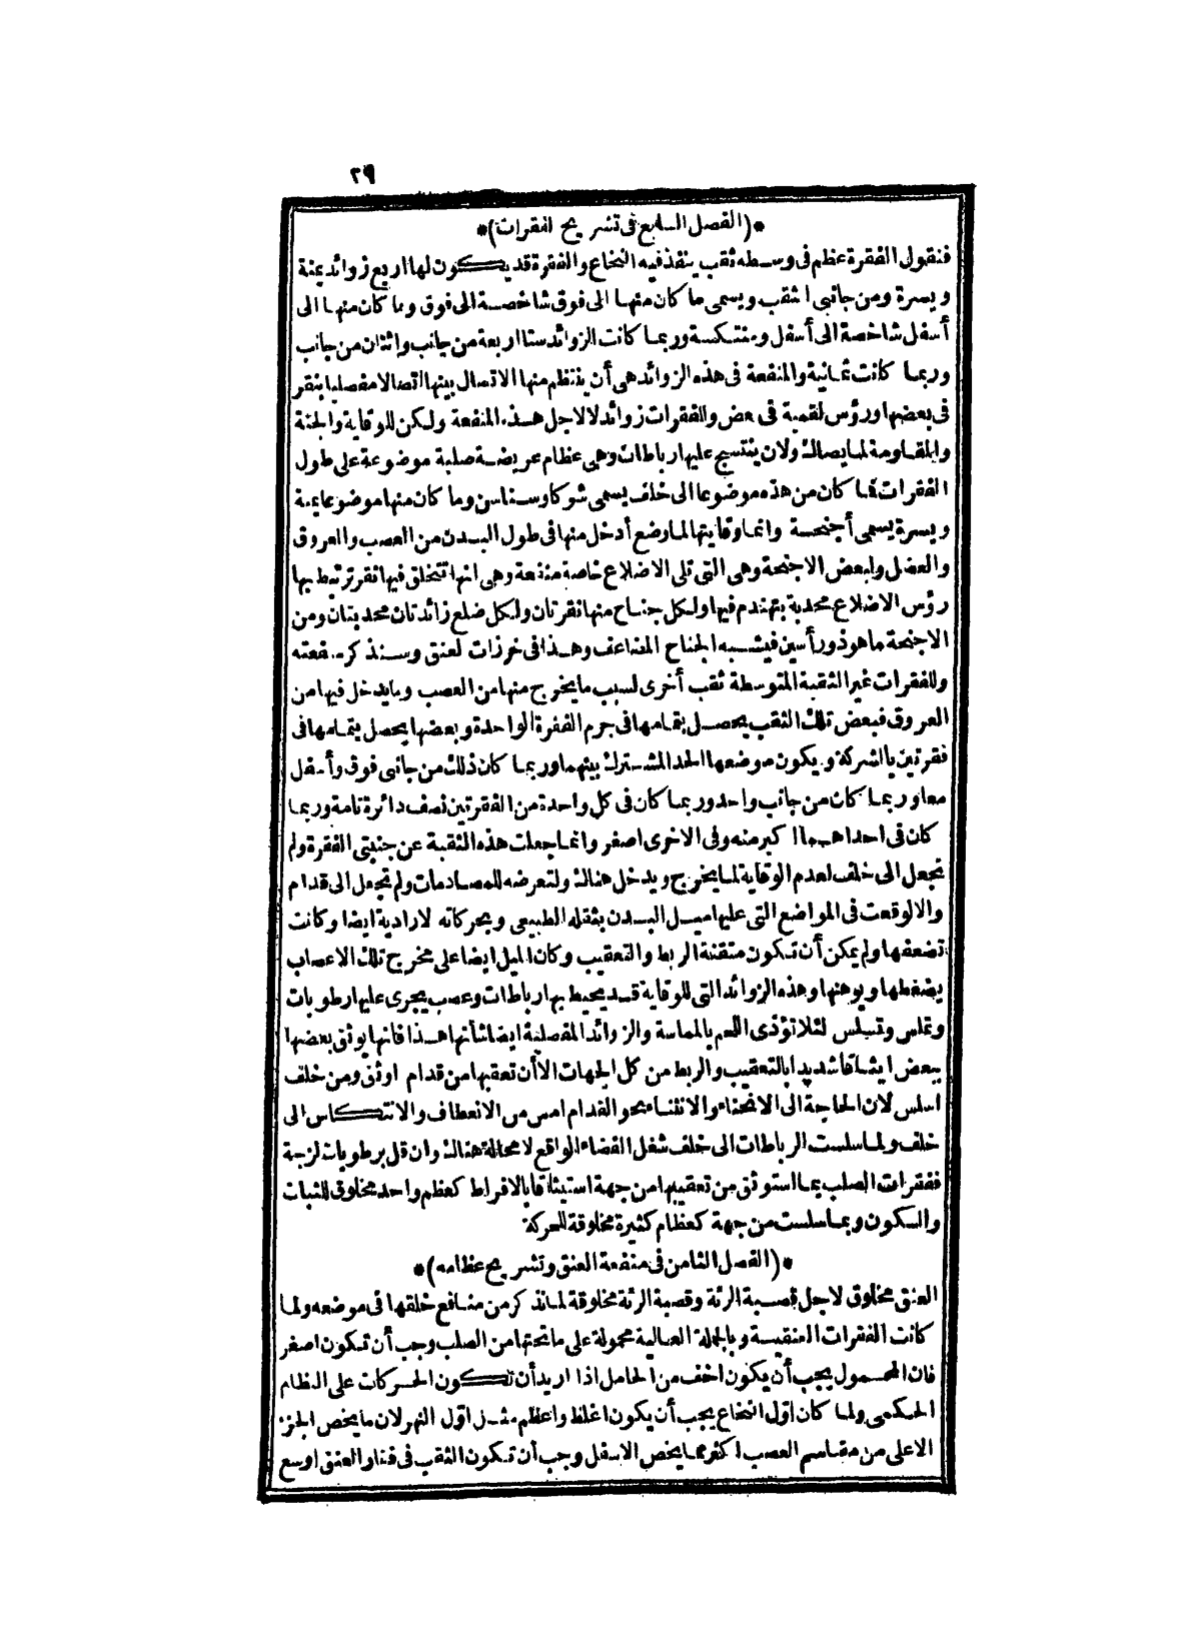 ٢٩
*(الفصل السابع فى تشريح الفقرات)*
فنقول الفقرة عظم فى وسطه ثقب ينفذ فيه النخاع والفقرة قد يكون لها اربع زوائد يمنة
ويسرة ومن جانبى الثقب ويسمى ما كان منها الى فوق شاخصة الى فوق وما كان منها الى
أسفل شاخصة الى أسفل ومنتكسة وربما كانت الزوائد ستا اربعة من جانب واثنان من جانب
وربما كانت ثمانية والمنفعة فى هذه الزوائد هى أن ينتظم منها الاتصال بينها اتصالا مفصليا بنقر
فى بعضها ورؤس لقمية فى بعض وللفقرات زوائد لا لاجل هذه المنفعة ولكن للوقاية والجنة
والمقاومة لما يصاك ولان ينتسج عليها رباطات وهى عظام عريضة صلبة موضوعة على طول
الفقرات فما كان من هذه موضوعا الى خلف يسمى شوكا وسناسن وما كان منها موضوعا يمنة
ويسرة يسمى أجنحة وانما وقايتها لما وضع أدخل منها فى طول البدن من العصب والعروق
والعضل ولبعض الاجنحة وهى التى تلى الاضلاع خاصة منفعة وهى انها تتخلق فيها نقر ترتبط بها
رؤس الاضلاع محدبة يتهندم فيها ولكل جناح منها نقرتان ولكل ضلع زائدتان محدبتان ومن
الاجنحة ما هو ذو رأسين فيشبه الجناح المضاعف وهذا فى خرزات العنق وسنذكر منفعته
وللفقرات غير الثقبة المتوسطة ثقب أخرى لسبب ما يخرج منها من العصب وما يدخل فيها من
العروق فبعض تلك الثقب يحصل بتمامها فى جرم الفقرة الواحدة وبعضها يحصل بتمامها فى
فقرتين بالشركة ويكون موضعها الحد المشترك بينهما وربما كان ذلك من جانبى فوق وأسفل
معا وربما كان من جانب واحد وربما كان فى كل واحدة من الفقرتين نصف دائرة تامة وربما
كان فى احداهما اكبر منه وفى الاخرى اصغر وانما جعلت هذه الثقبة عن جنبتى الفقرة ولم
تجعل الى خلف لعدم الوقاية لما يخرج ويدخل هناك ولتعرضه للمصادمات ولم تجعل الى قدام
والا لوقعت فى المواضع التى عليها ميل البدن بثقله الطبيعى وبحركاته الارادية ايضا وكانت
تضعفها ولم يمكن أن تكون متقنة الربط والتعقيب وكان الميل ايضا على مخرج تلك الاعصاب
يضغطها ويوهنها وهذه الزوائد التى للوقاية قد يحيط بها رباطات وعصب يجرى عليها رطوبات
وتملس وتسلس لئلا تؤذى اللحم بالمماسة والزوائد المفصلية ايضا شأنها هذا فانها يوثق بعضها
ببعض ايثاقا شديدا بالتعقيب والربط من كل الجهات الا أن تعقبها من قدام اوثق ومن خلف
اسلس لان الحاجة الى الانحناء والانثناء نحو القدام امس من الانعطاف والانتكاس الى
خلف ولما سلست الرباطات الى خلف شغل الفضاء الواقع لا محالة هناك وان قل برطوبات لزجة
ففقرات الصلب بما استوثق من تعقيبها من جهة استيثاقا بالافراط كعظم واحد مخلوق للثبات
والسكون وبما سلست من جهة كعظام كثيرة مخلوقة للحركة
*(الفصل الثامن فى منفعة العنق وتشريح عظامه)*
العنق مخلوق لاجل قصبة الرئة وقصبة الرئة مخلوقة لما نذكر من منافع خلقها فى موضعه ولما
كانت الفقرات العنقية وبالجملة العالية محمولة على ما تحتها من الصلب وجب أن تكون اصغر
فان المحمول يجب أن يكون اخف من الحامل اذا اريد أن تكون الحركات على النظام
الحكمى ولما كان اول النخاع يجب أن يكون اغلظ واعظم مثل اول النهر لان ما يخص الجزء
الاعلى من مقاسم العصب اكثر مما يخص الاسفل وجب أن تكون الثقب فى فقار العنق اوسع